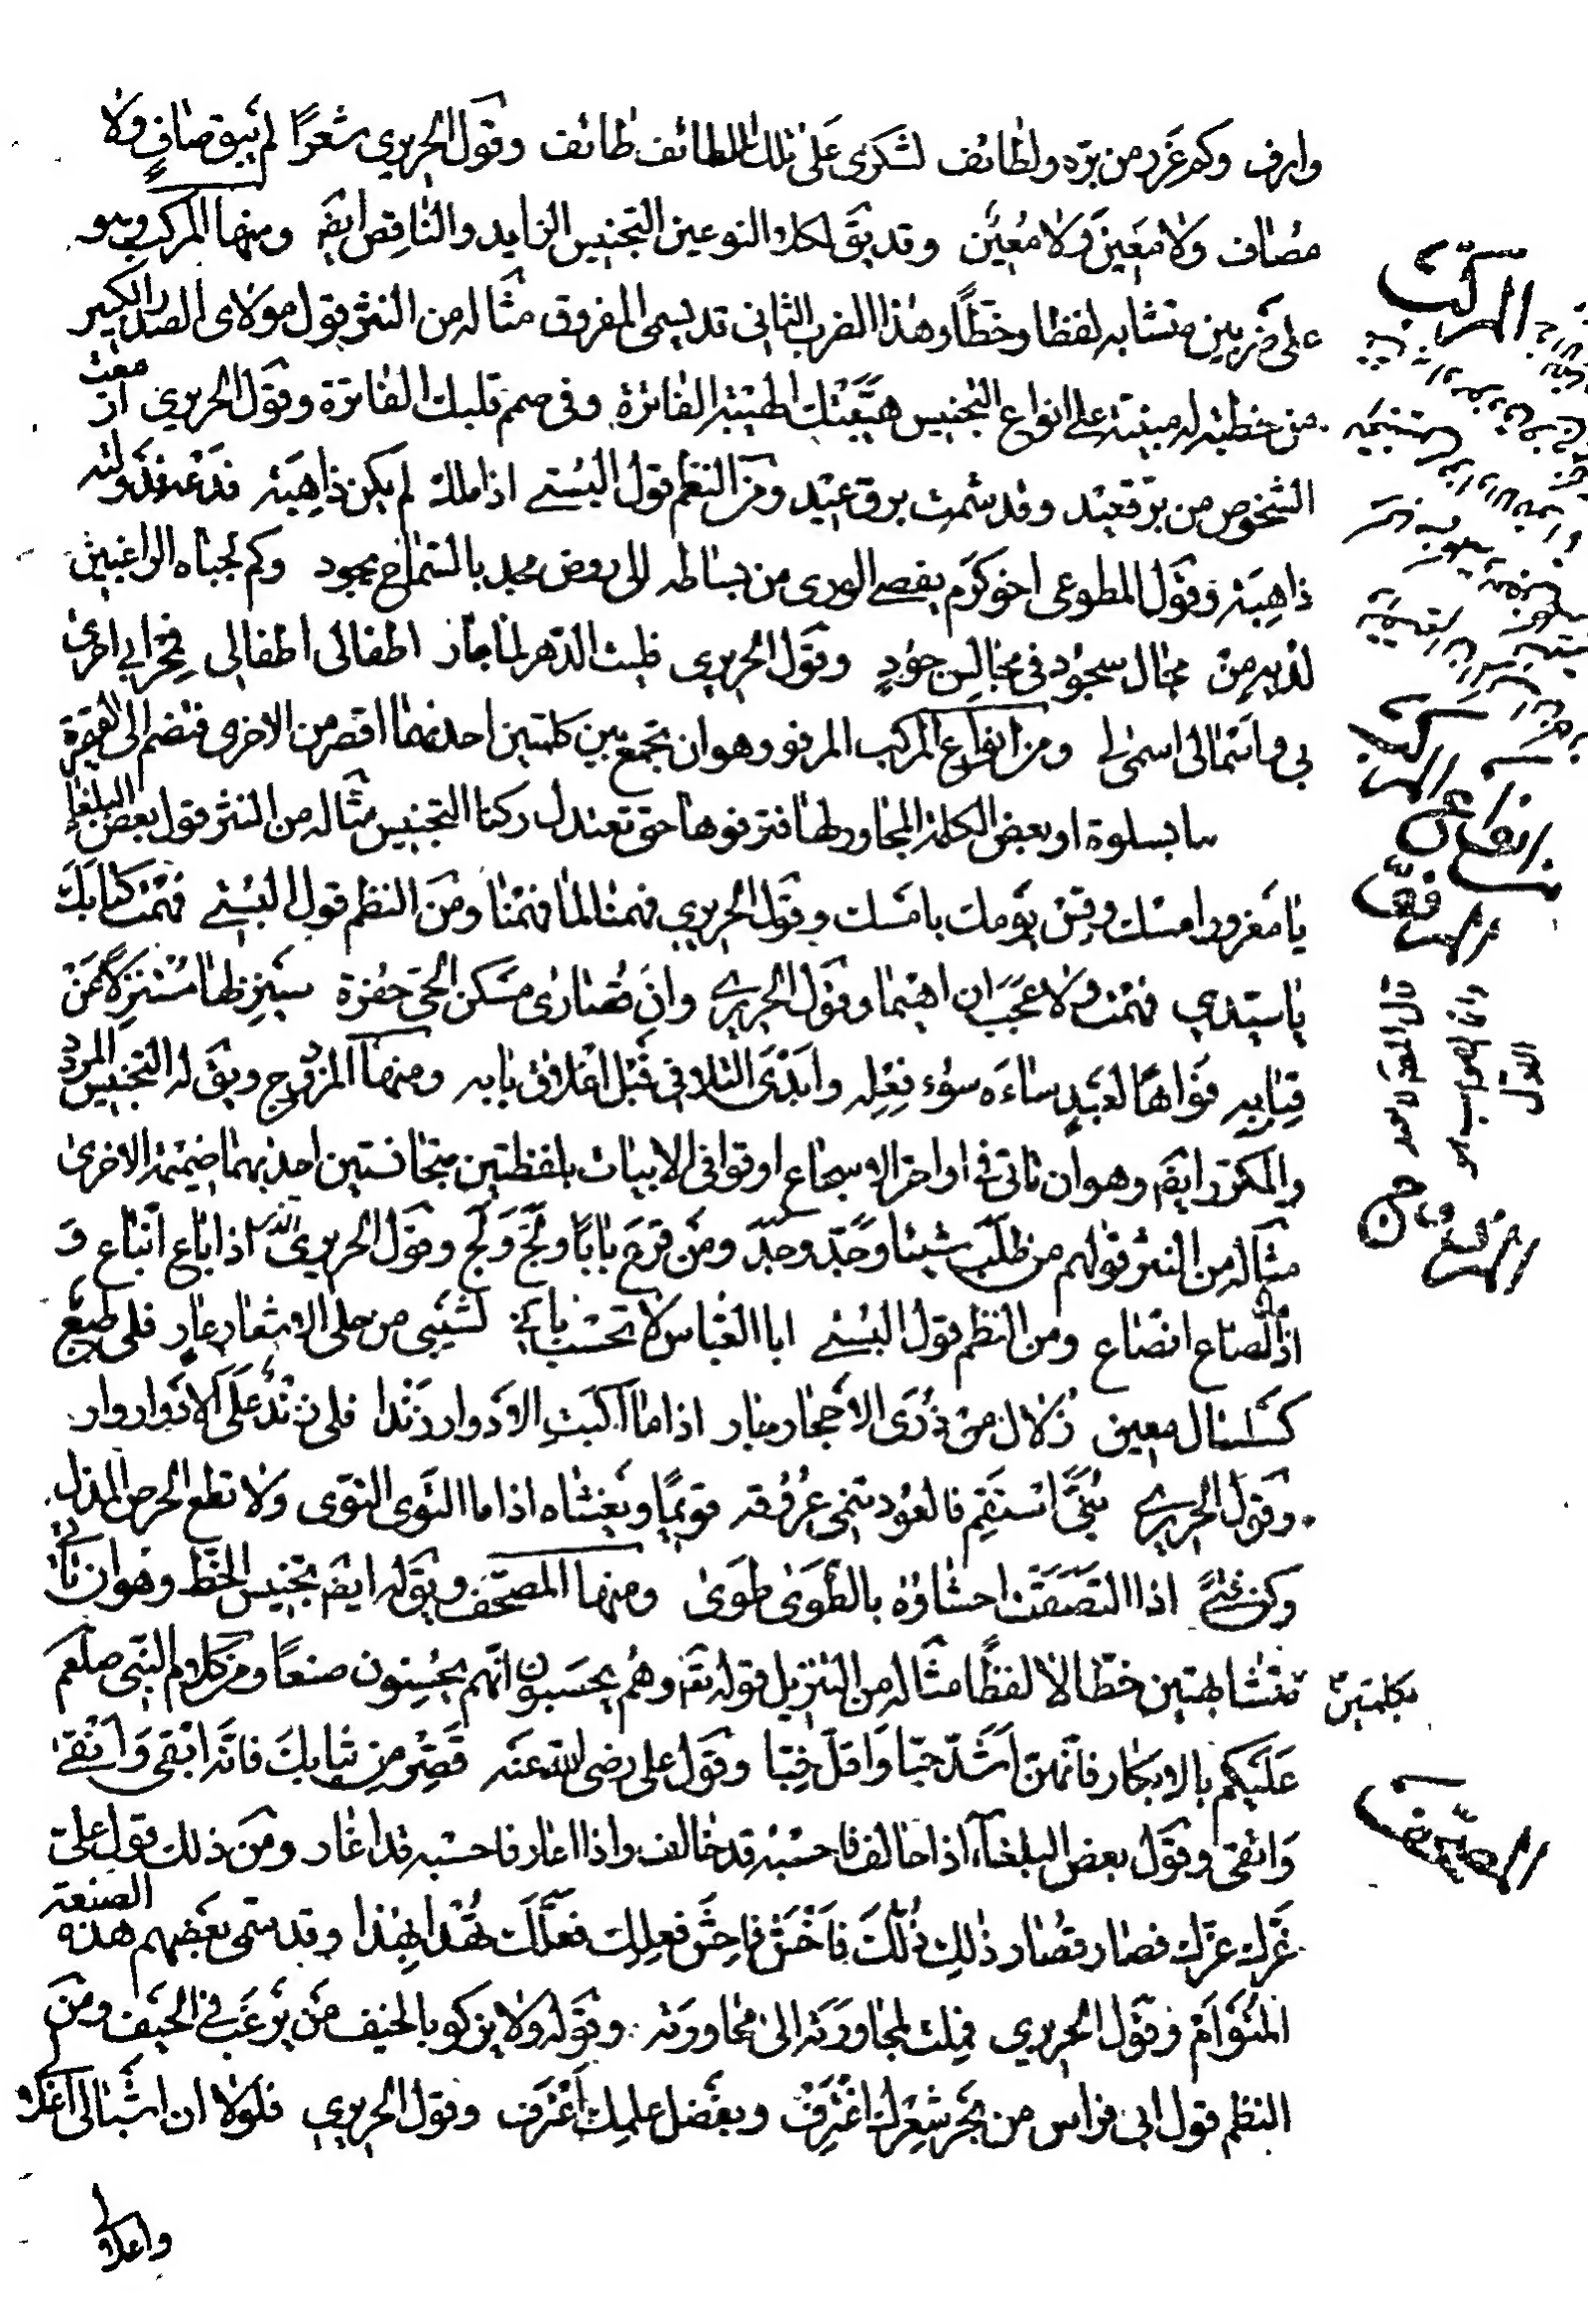 وارف وكم غرر من بره ولطائف لشكرى على تلك اللطائف طائف وقول الحريري شعرًا لم يبق صافٍ ولا
مصاف ولا مَعين ولا مُعين وقد يق لكلا النوعين التجنيس الزايد والناقص ايضً ومنها المركب وهو
على ضربين متشابه لفظا وخطًا وهذا الضرب الثانى قد يسمى المفروق مثاله من النثر قول مولاى الصدر الكبير
من خطبة له مبنية على انواع التجنيس الهيبة الفائزة وفى صمم قلبك الفائزة وقول الحريري ازمعت
الشخوص من برقعيد وقد شمت برق عيد ومن النظم قول البستي اذا ملك لم يكن ذا هبة فدعه فدولته
ذاهبة وقول المطوعى اخو كرم يفضى الورى من بساطه الى روض مجد بالسماح مجود وكم لجباه الراغبين
لديه من مجال سجود فى مجالس جود وقول الحريري فليت الدهر لما جار اطفالى اطفالى
ومن انواع المركب المرفو وهو ان تجمع بين كلمتين احديهما اقصر من الاخرى فتضم الى القصيرة
او بعض الكلمة المجاورة لها فترفوها حتى تعتدل ركنا التجنيس مثاله من النثر قول بعض البلغاء
يا مغرور امسك وقس يومك بامسك وقول الحريري ومن النظم قول البستي فهمت كتابك
يا سيدي فهمت ولا عجب ان اهيما وقول الحريري وان قصارى مسكن الحى حفرة سينزلها مستنزلًا عن
قبابه فواهًا لعبدٍ ساءه سوء فعله وابدى التلافي قبل اغلاق بابه ومنها المزدوج ويق له التجنيس المردد
والمكرر ايضً وهو ان تاتى فى اواخر الاسجاع او قوافى الابيات بلفظتين متجانستين احديهما ضميمة الاخرى
مثاله من النثر قولهم من طلب شيئا وجدّ وجد ومن قرع بابًا ولجّ ولج وقول الحريري اذا باع انباع و
اذا الصاع انصاع ومن النظم قول البستي ابا العباس لا تحسب باني لشيبى من حلى الاشعار عار فلى طبع
كسلسال معين زلال من ذرى الاحجار جار اذا ما اكبت الادوار زندا فلى زند على الادوار وار
وقول الحريري بنىّ استقم فالعود تنمى عروقه قويمًا ويغشاه اذا ما التوى التوى ولا تطع الحرص المذل
وكن فتًى اذا التصقت احشاؤه بالطوى طوى ومنها المصحف ويق له ايضً تجنيس الخط وهو ان ياتى
بكلمتين متشابهتين خطّا لا لفظًا مثاله من التنزيل قوله تعً وهم يحسبون انهم يحسنون صنعًا ومن كلام النبى صلعم
عليكم بالابكار فانهن اشد حبّا واقل خبّا وقول على رضى الله عنه قصر من ثيابك فانه ابقى وانقى
واتقى وقول بعض البلغاء اذا حالف فاحسبه قد خالف واذا اعار فاحسبه قد اغار ومن ذلك قول على
غرك عزك فصار قصار ذلك ذلك فاخش فاحش فعلك فعلك تهدا بهذا وقد سمى بعضهم هذه الصنعة
المتوأم وقول الحريري فملت لمجاورته الى محاورته وقوله ولا يزكو بالخيف من يرغب في الحيف ومن
النظم قول ابى فراس من بحر شعرك اغترف وبفضل علمك اعترف وقول الحريري فلولا ان اشبالى اغلا
واعلا
المركب
ومن انواع المركب
المرفو
المزدوج
المصحف